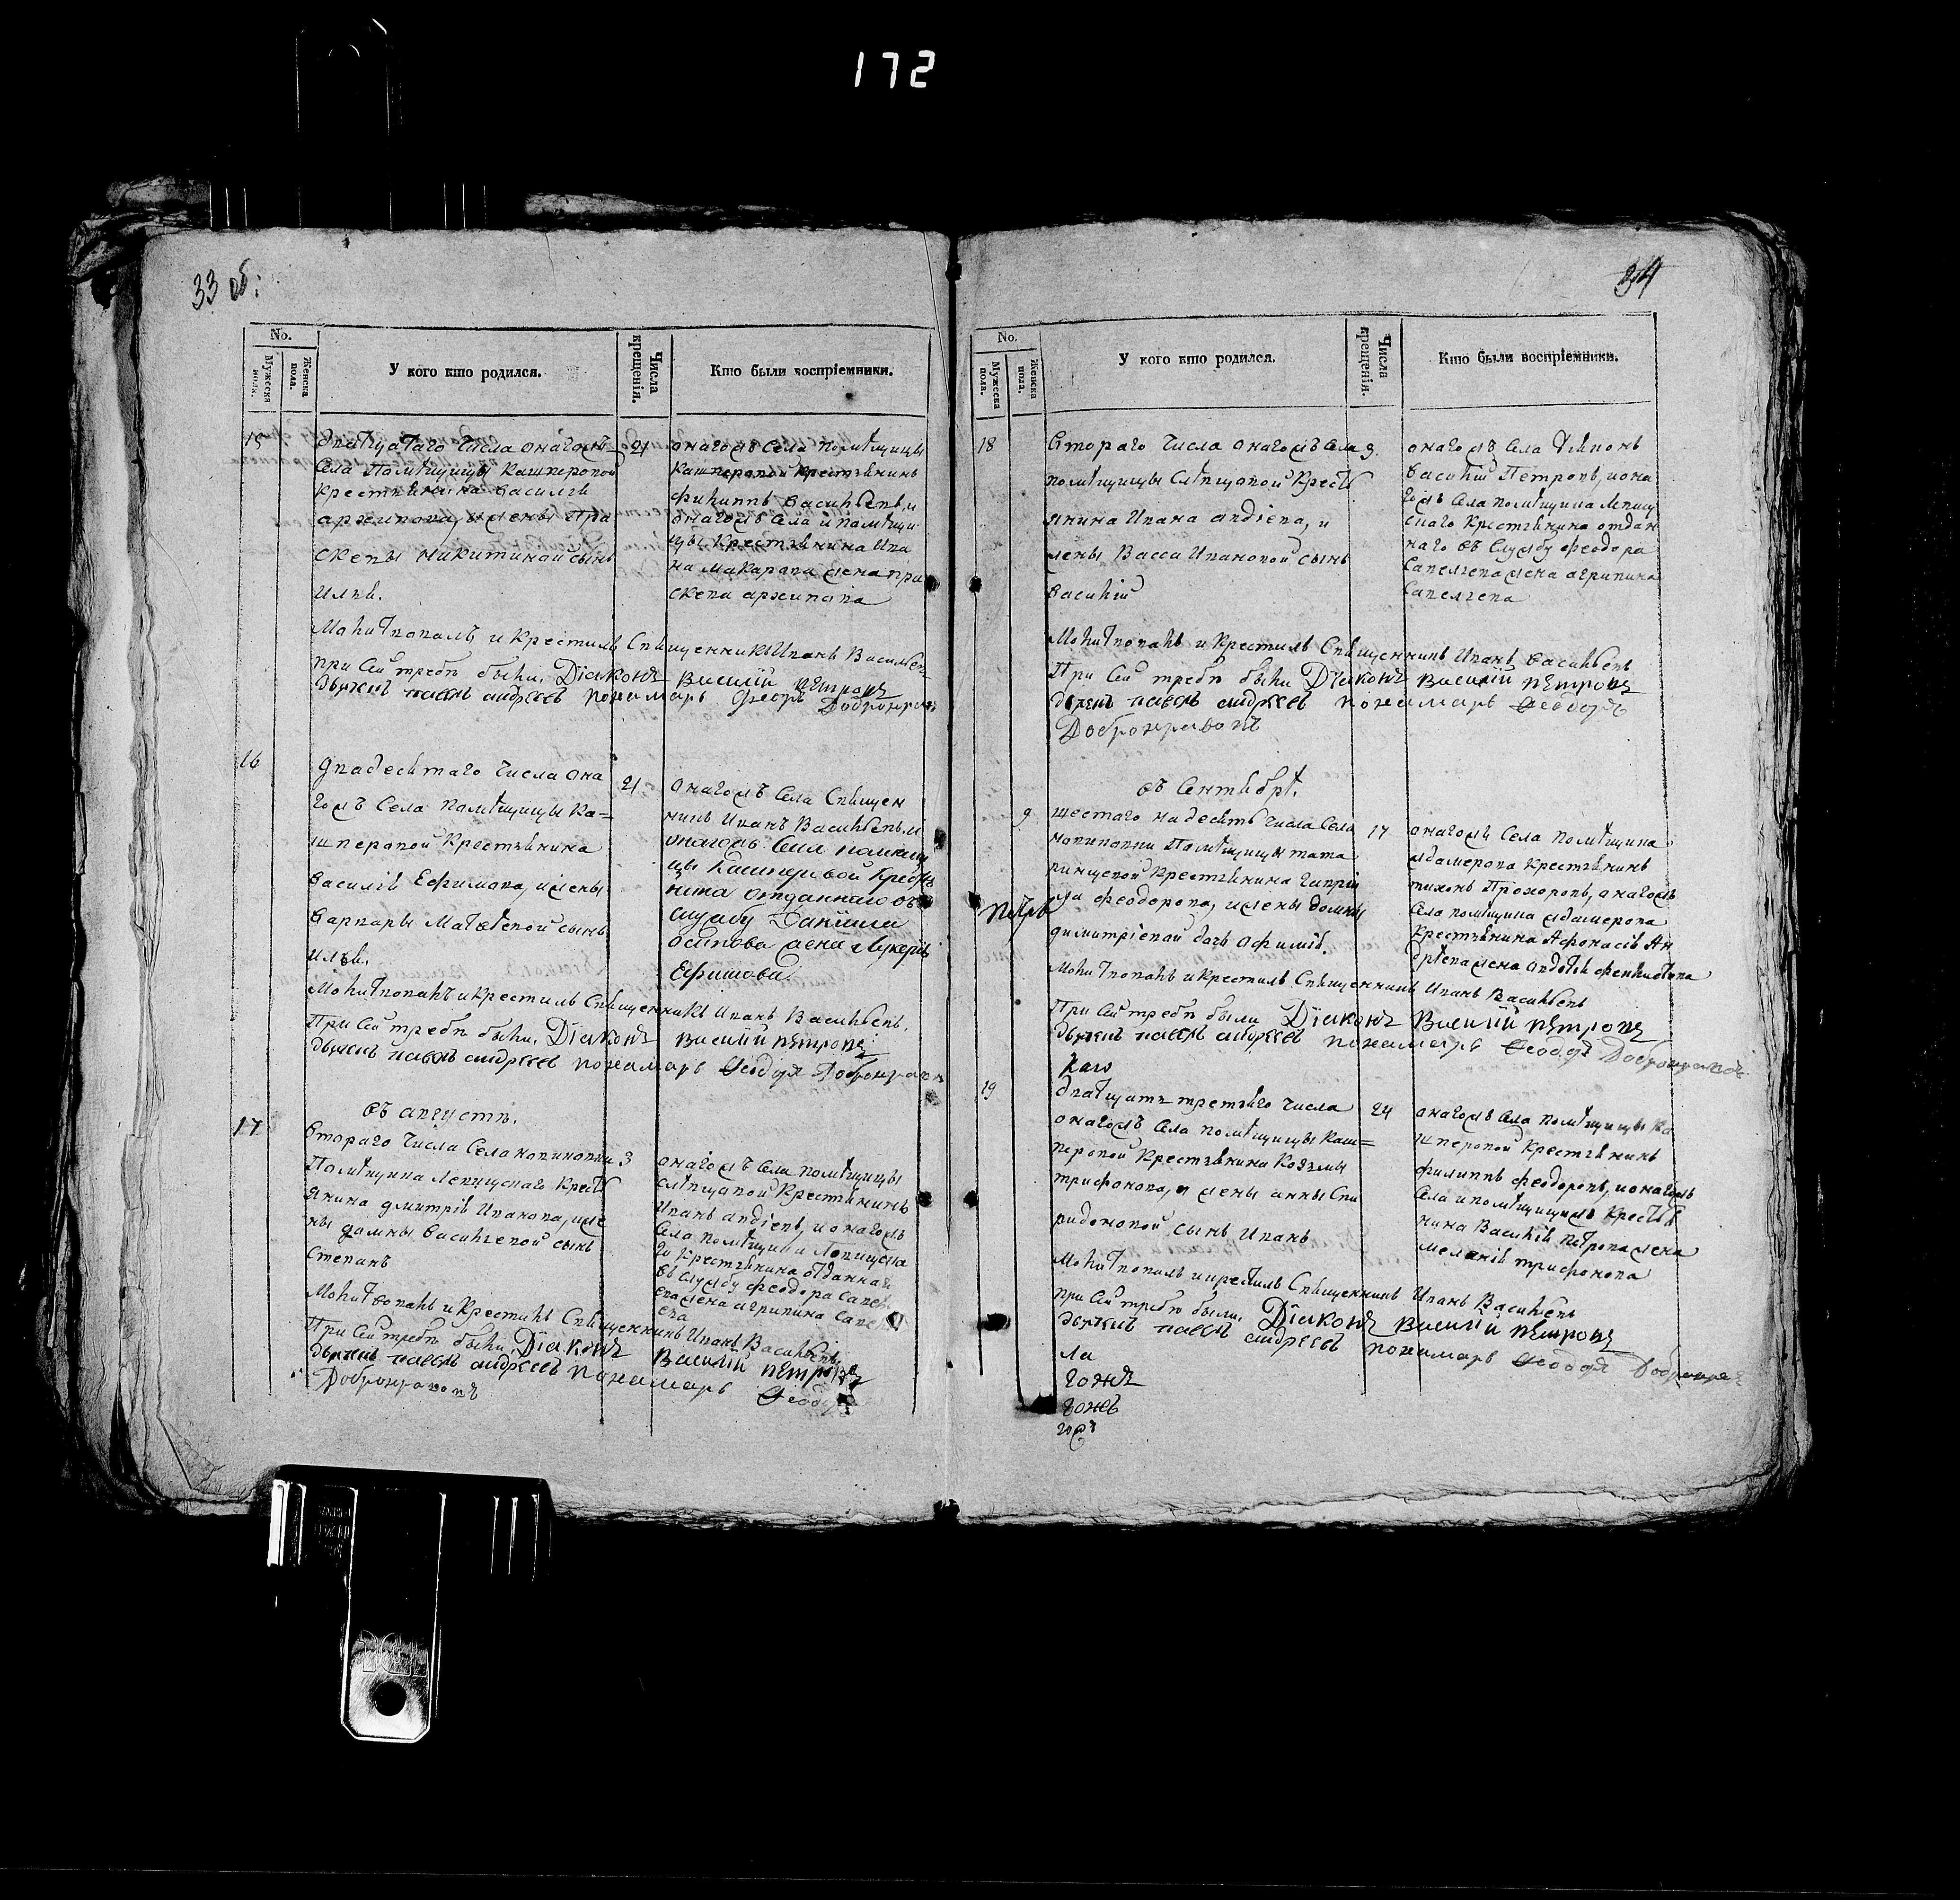 172
33 об:
No.
Мужеска пола.
Женска пола.
У кого кто родился.
Числа крещенія.
Кто были воспріемники.
15
дватцатаго числа онагожъ
села помѣщицы Кашперовой
крестьянина василья
архипова, и жены Пра
сковьи никитиной сынъ
илья.
21
онагожъ села помѣщицы
кашперовой крестьянинъ
филиппъ васильевъ, и
онагожъ села и помѣщи
цы крестьянина Ива
на макарова жена пра
сковья архипова
Молитвовалъ и крестилъ Священникъ Иванъ Васильевъ
при сей требѣ были. Діаконъ василій петровъ
дьячекъ павелъ андреевъ пономарь Феодръ Добронраво
16
двадесятаго числа она
гожъ села помѣщицы Ка=
шперовой крестьянина
василья Ефимова, и жены
варвары Матвѣевой сынъ
илья.
21
онагожъ села Священ
никъ Иванъ Васильевъ и
онагожъ села помѣщи
цы Кашперовой крестья
нина отданнаго въ
службу Даніила
осипова жена Лукерья
Ефимова.
Молитвовалъ и крестилъ Священникъ Иванъ Васильевъ.
При сей требѣ были. Діаконъ василій петровъ
дьячекъ павелъ андреевъ пономарь Феодоръ Добронравов
въ августѣ.
17
втораго числа села
Помѣщика крест
янина дмитрія Иванова, и же
ны домны васильевой сынъ
степанъ
3
онагожъ села помѣщицы
слѣпцовой крестьянинъ
Иванъ андіевъ, и онагожъ
села помѣщика
го крестьянина отданнаго
въ службу феодора савель
ева жена агрипина саве
ева
Молитвовалъ и крестилъ Священникъ Иванъ Васильевъ
При сей требѣ были. Діаконъ василій петровъ
дьячекъ павелъ андреевъ пономарь Феодоръ
Добронравовъ
34
No.
Мужеска пола.
Женска пола.
У кого кто родился.
Числа крещенія.
Кто были воспріемники.
18
втораго числа онагожъ села
помѣщицы Слѣпцовой крест
янина Ивана андіева, и
жены Васса Ивановой сынъ
василій
3
онагожъ села Діяконъ
василій Петровъ, и она
гожъ села помѣщика
скаго крестьянина отдан
наго въ службу феодора
савельева жена агрипина
савельева
Молитвовалъ и крестилъ Священникъ Иванъ Васильевъ
При сей требѣ были Діаконъ василій петровъ
дьячекъ павелъ андреевъ пономарь Феодоръ
Добронравовъ
въ Сентябрѣ.
9
шестаго на десять числа села
Помѣщицы тата
ринцевой крестьянина
ла феодорова, и жены домны
димитріевой дочь афимія.
Петръ
17
онагожъ села помѣщика
адамерова крестьянинъ
тихонъ Прохоровъ, онагожъ
села помѣщика адамерова
крестьянина Афонасія Ан
дрѣева жена авдотья
Молитвовалъ и крестилъ Священникъ Иванъ Васильевъ
При сей требѣ были Діаконъ Василій петровъ
дьячекъ павелъ андреевъ пономарь Феодоръ Добронравовъ
каго
19
дватцать третьяго числа
онагожъ села помѣщицы Каш=
перовой крестьянина Козьмы
трифонова, и жены анны Спи
ридоновой сынъ Иванъ
24
онагожъ села помѣщицы Ка
шперовой крестьянинъ
филиппъ феодоровъ, и онагожъ
села и помѣщицыжъ крестья
нина Василія Петрова жена
меланія трифонова
Молитвовалъ и крестилъ Священникъ Иванъ Васильевъ
при сей требѣ были. Діаконъ василій петровъ
дьячекъ павелъ андреевъ пономарь Феодоръ Добронрав
ла
гожъ
гожъ